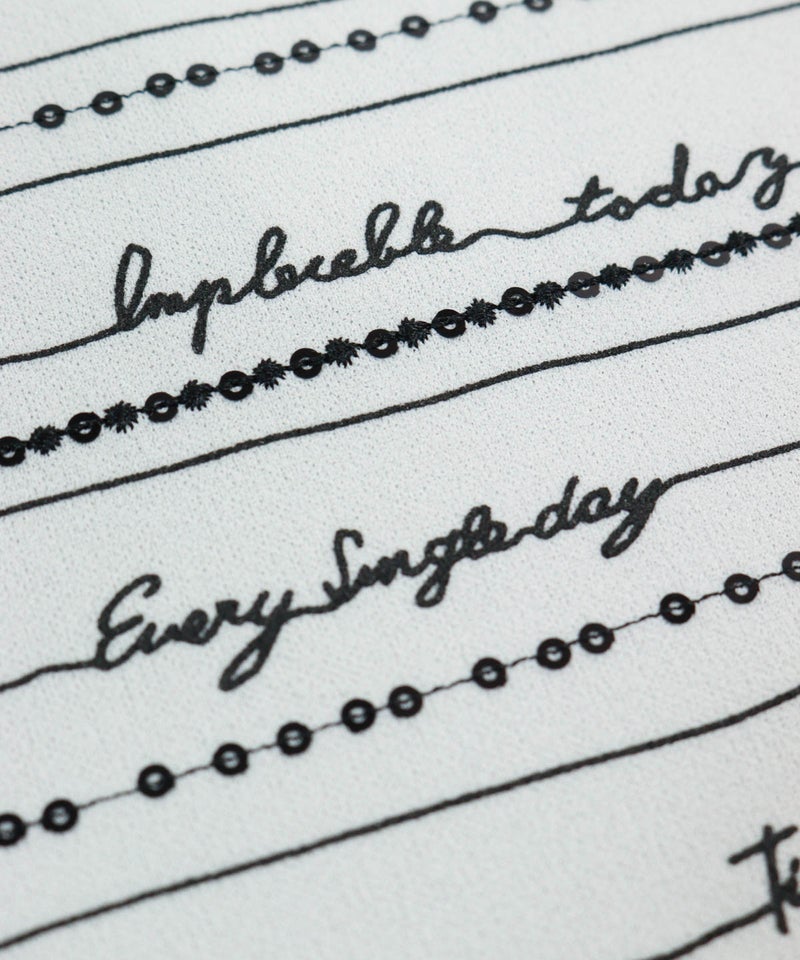 Implacable today
Every Single day
Ti